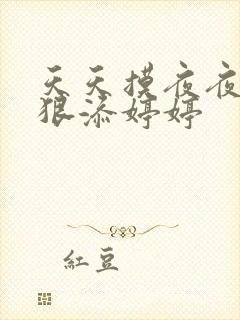 天天摸夜夜
狠添婷婷
紅豆